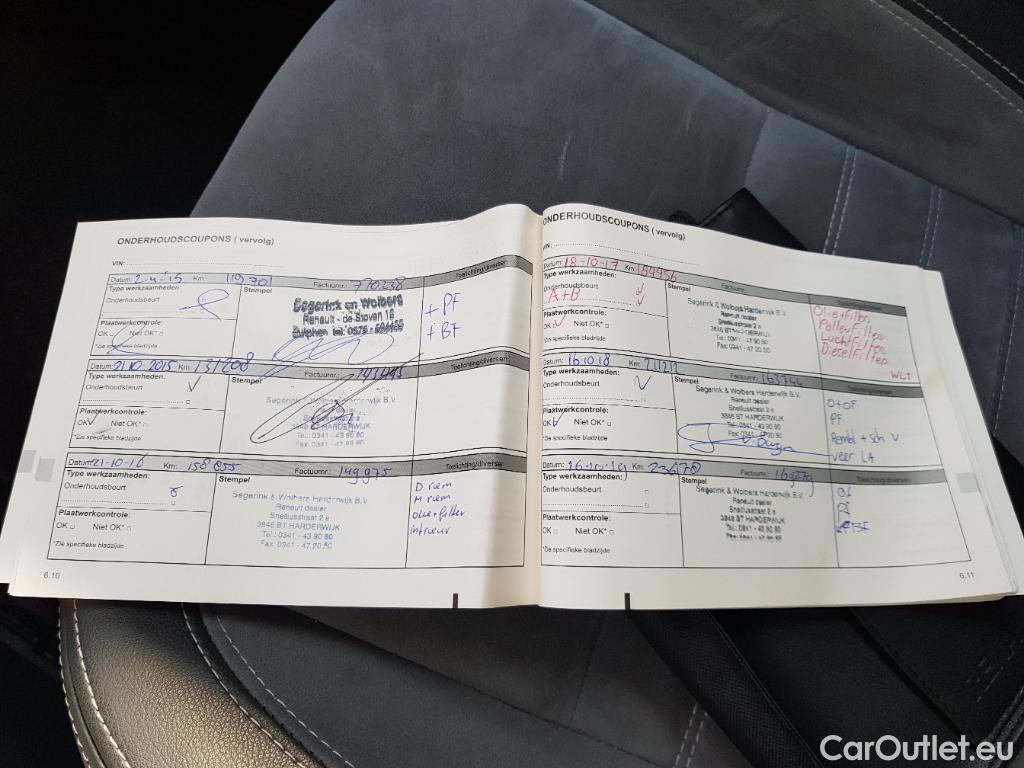 ONDERHOUDSCOUPONS ( vervolg)
VIN:
Datum: 2-4-15 Km: 119 701 Factuurnr.: 770238 Toelichting/diversen
Type werkzaamheden:
Onderhoudsbeurt
Stempel
Segerink en Wolbers
Renault - de Stoven 18
Zutphen tel: 0575 -
+ PF
+ BF
Plaatwerkcontrole:
OK Niet OK*
*Zie specifieke bladzijde
Datum: 21.10.2015 Km: 131208 Factuurnr.: 143495 Toelichting/diversen
Type werkzaamheden:
Onderhoudsbeurt
Stempel
Segerink & Wolbers Harderwijk B.V.
Renault dealer
Snelliusstraat 2 a
3846 BT HARDERWIJK
Tel.: 0341 - 43 90 80
Fax: 0341 - 47 20 50
Plaatwerkcontrole:
OK Niet OK*
*Zie specifieke bladzijde
Datum: 21-10-16 Km: 158855 Factuurnr.: 149975 Toelichting/diversen
Type werkzaamheden:
Onderhoudsbeurt
Stempel
Segerink & Wolbers Harderwijk B.V.
Renault dealer
Snelliusstraat 2 a
3846 BT HARDERWIJK
Tel.: 0341 - 43 90 80
Fax: 0341 - 47 20 50
D riem
M riem
olie+filter
interieur
Plaatwerkcontrole:
OK Niet OK*
*Zie specifieke bladzijde
6.10
ONDERHOUDSCOUPONS ( vervolg)
VIN:
Datum: 18-10-17 Km: 184956 Factuurnr.:
Type werkzaamheden:
Onderhoudsbeurt
A+B
Stempel
Segerink & Wolbers Harderwijk B.V.
Renault dealer
Snelliusstraat 2 a
3846 BT HARDERWIJK
Tel.: 0341 - 43 90 80
Fax: 0341 - 47 20 50
Oliefilter
Pollenfilter
Luchtfilter
Dieselfilter
WLT
Plaatwerkcontrole:
OK Niet OK*
*Zie specifieke bladzijde
Datum: 16 10 18 Km: Factuurnr.: 163744 Toelichting/diversen
Type werkzaamheden:
Onderhoudsbeurt
Stempel
Segerink & Wolbers Harderwijk B.V.
Renault dealer
Snelliusstraat 2 a
3846 BT HARDERWIJK
Tel.: 0341 - 43 90 80
Fax: 0341 -
O+OF
PF
veer LA
Plaatwerkcontrole:
OK Niet OK*
*Zie specifieke bladzijde
Datum: 16-10-19 Km: Factuurnr.: Toelichting/diversen
Type werkzaamheden:
Onderhoudsbeurt
Stempel
Segerink & Wolbers Harderwijk B.V.
Renault dealer
Snelliusstraat 2 a
3846 BT HARDERWIJK
Tel.: 0341 - 43 90 80
Fax: 0341 - 47 20 50
Plaatwerkcontrole:
OK Niet OK*
*Zie specifieke bladzijde
6.11
CarOutlet.eu